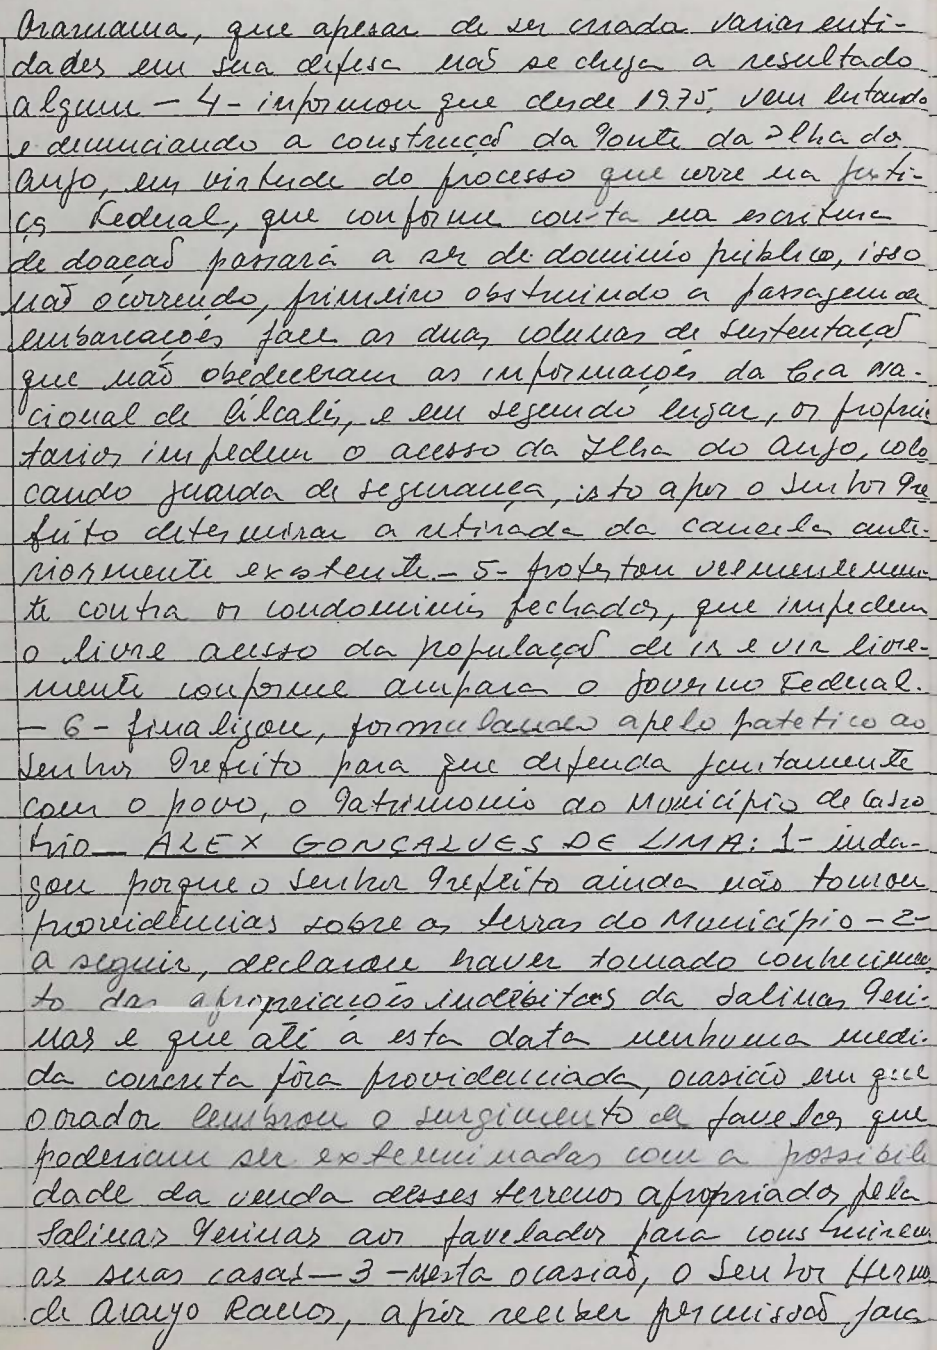 Araruama, que apesar de ser criada varias enti-
dades em sua defesa não se chega a resultado
algum - 4 - informou que desde 1975, vem lutando
e denunciando a construção da Ponte da Ilha do
Anjo, em virtude do processo que corre na Justi-
ça Federal, que conforme consta na escritura
de doação passará a ser de dominio público, isso
não ocorrendo, primeiro obstruindo a passagem de
embarcações face as duas colunas de sustentação
que não obedeceram as informações da Cia Na-
cional de Álcalis, e em segundo lugar, os proprie
tarios impedem o acesso da Ilha do Anjo, colo
cando guarda de segurança, isto apos o Senhor Pre
feito determinar a retirada da cancela ante-
riormente existente - 5 - protestou veementemen
te contra os condominios fechados, que impedem
o livre acesso da população de ir e vir livre-
mente conforme ampara o Governo Federal.
- 6 - finalizou, formulando apelo patetico ao
Senhor Prefeito para que defenda juntamente
com o povo, o Patrimonio do Municipio de Cabo
Frio - ALEX GONÇALVES DE LIMA: 1 - inda-
gou porque o Senhor Prefeito ainda não tomou
providências sobre as terras do Municipio - 2 -
a seguir, declarou haver tomado conhecimen
to das apropriações indébitas da Salinas Peri-
nas e que até à esta data nenhuma medi-
da concreta fôra providenciada, ocasião em que
o orador lembrou o surgimento de favelas que
poderiam ser exterminadas com a possibili
dade da venda desses terrenos apropriados pela
Salinas Perinas aos favelados para construirem
as suas casas - 3 - Nesta ocasião, o Senhor
de Araujo Ramos, após receber permissão para